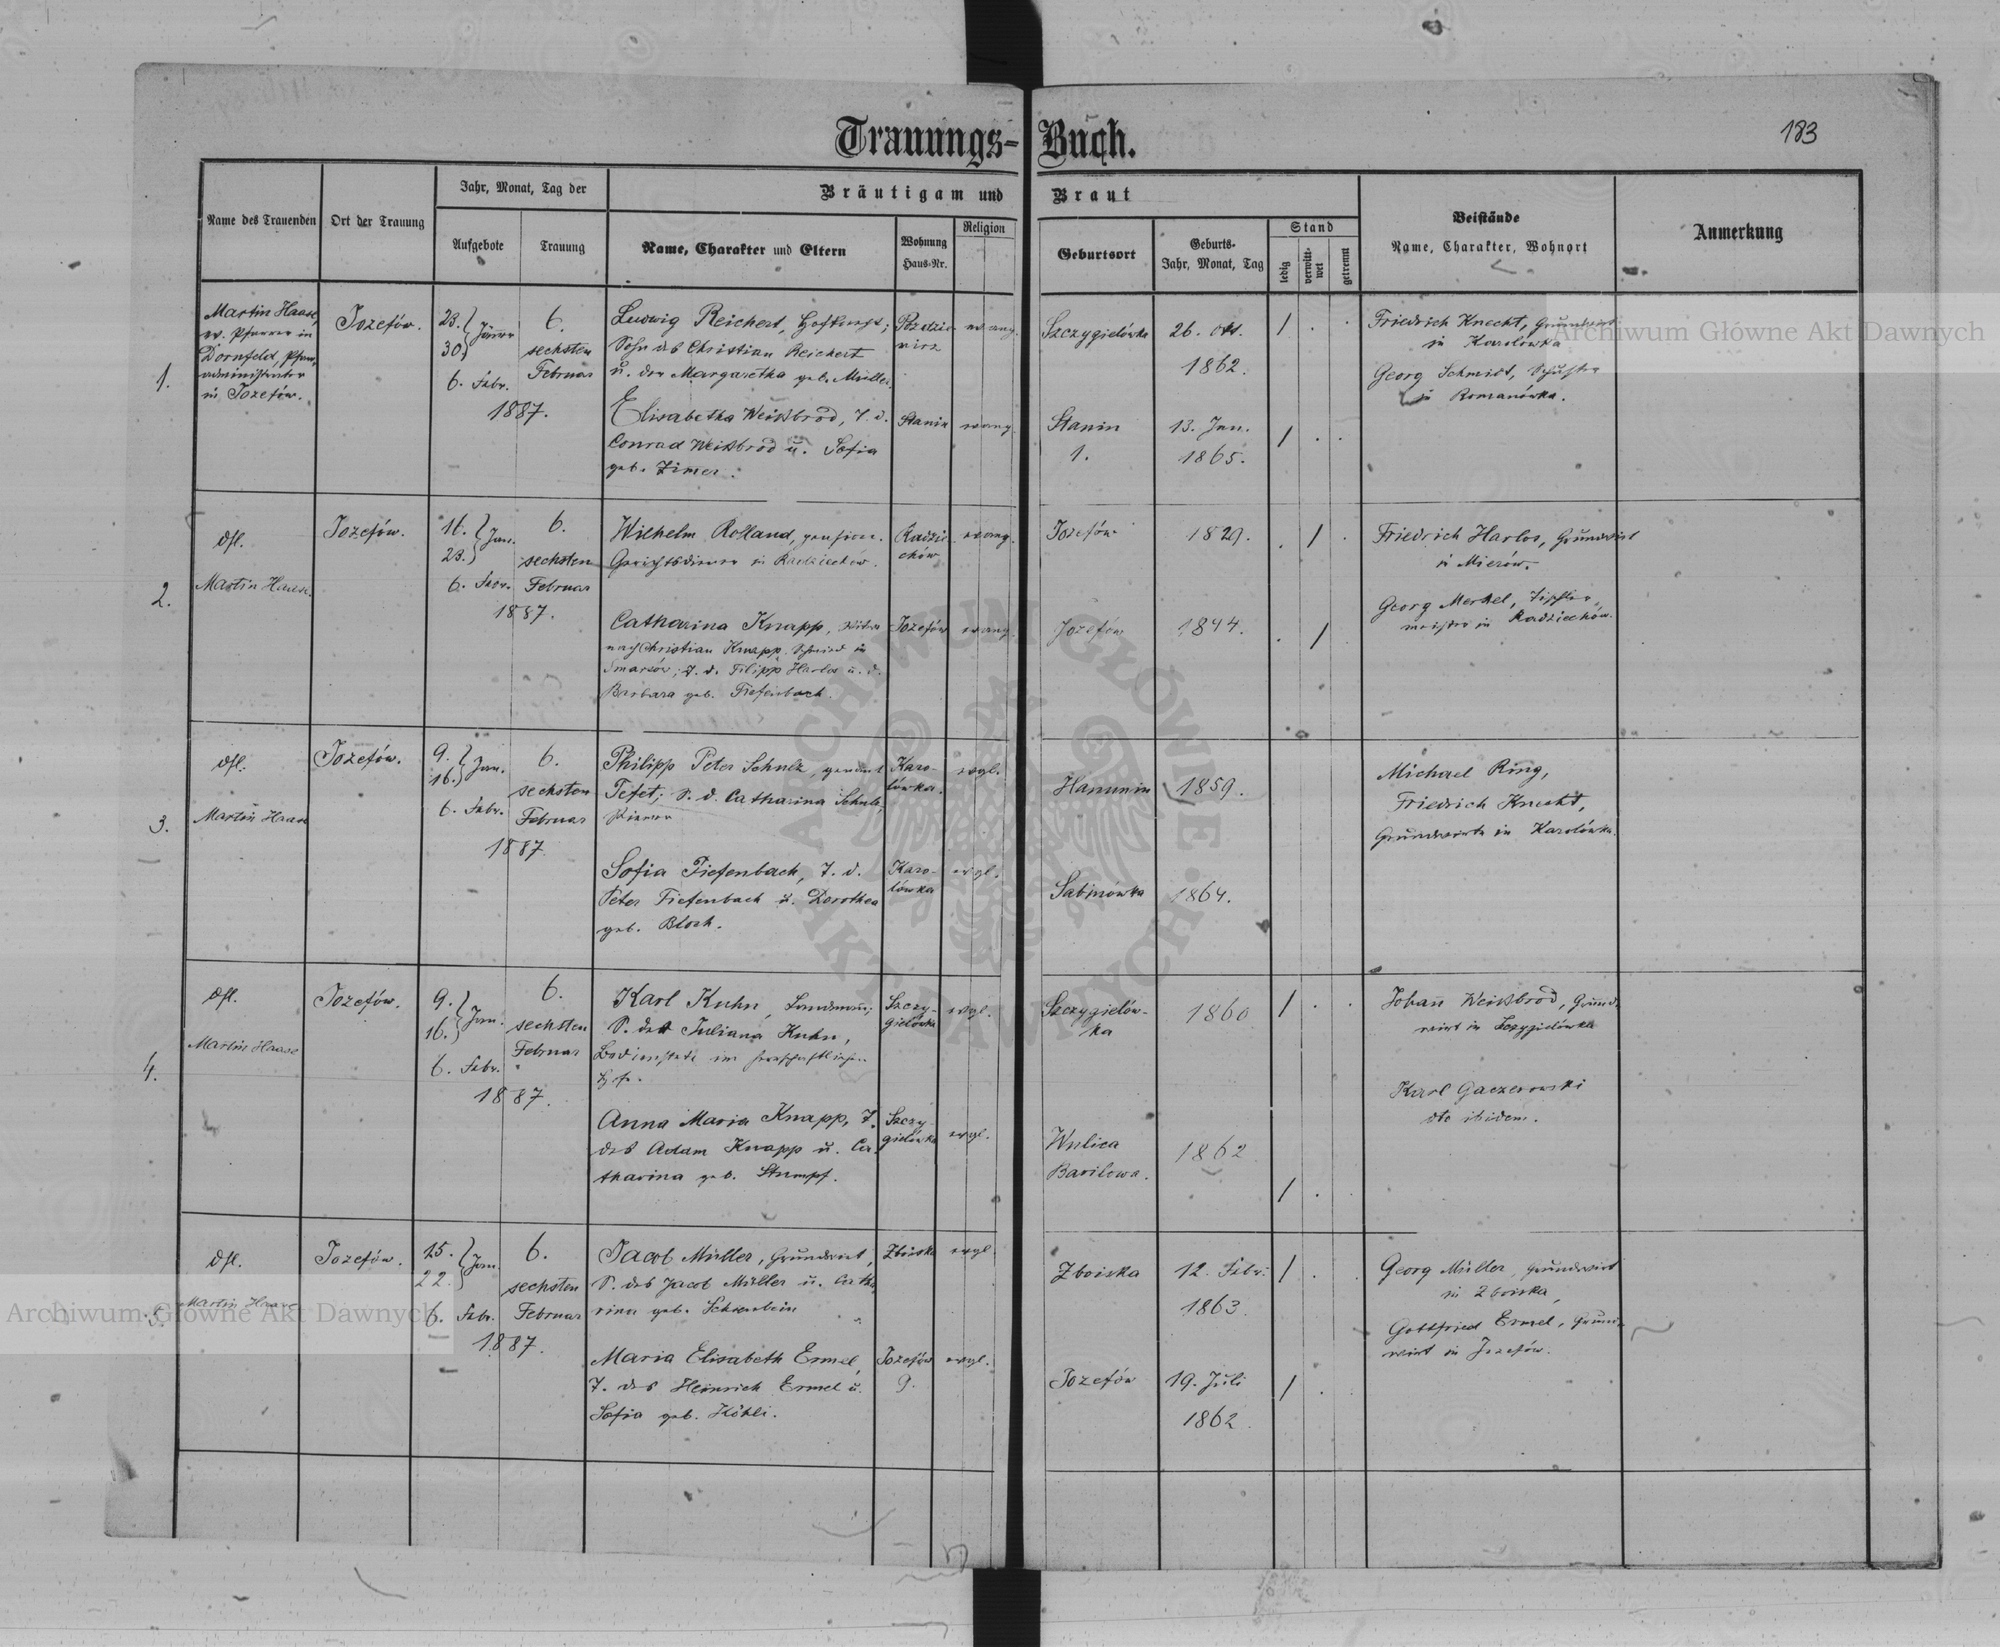 Trauungs-Buch.
183
Name des Trauenden
Ort der Trauung
Jahr, Monat, Tag der
Aufgebote
Trauung
Bräutigam und Braut
Name, Charakter und Eltern
Wohnung
Haus-Nr.
Religion
Geburtsort
Geburts-
Jahr, Monat, Tag
Stand
ledig
verwitt-
wet
getrennt
Beistände
Name, Charakter, Wohnort
Anmerkung
1.
Martin Haase,
ev. Pfarrer in
Dornfeld, Pfarr-
administrator
in Jozefów.
Jozefów.
23.
30.
Jänner
6. Febr.
6.
sechsten
Februar
1887.
Ludwig Reichert,
Sohn des Christian Reichert
u. der Margaretha geb. Müller.
evang.
Szczygielówka
26. Okt.
1862.
Elisabetha Weißbrod, T. d.
Conrad Weißbrod u. Sofia
geb. Zimer.
Stanin
evang.
Stanin
1.
13. Jan.
1865.
Friedrich Knecht, Grundwirt
in Karolówka
Georg Schmidt, Schuster
in Romanówka.
2.
dsl.
Martin Haase.
Jozefów.
16.
23.
Jan.
6. Febr.
6.
sechsten
Februar
1887.
Wilhelm Rolland, pension.
Gerichtsdiener in Radziechów.
Radzie-
chów
evang.
Jozefów
1829.
Catharina Knapp, Witwe
nach Christian Knapp, Schmied in
T. d. Filipp Harlos u. d.
Barbara geb. Tiefenbach.
Jozefów
evang.
Jozefów
1844.
Friedrich Harlos, Grundwirt
in Mierów.
Georg Merkel, Tischler-
meister in Radziechów.
3.
dsl.
Martin Haase
Jozefów.
9.
16.
Jan.
6. Febr.
6.
sechsten
Februar
1887
Philipp Peter Schulz, genannt
Tefet; S. d. Catharina Schulz,
Karo-
lówka.
evgl.
Hanunin
1859.
Sofia Tiefenbach, T. d.
Peter Tiefenbach u. Dorothea
geb. Bloch.
Karo-
lówka
evgl.
Sabinówka
1864.
Michael Ring,
Friedrich Knecht,
Grundwirte in Karolówka.
4.
dsl.
Martin Haase
Jozefów.
9.
16.
Jan.
6. Febr.
6.
sechsten
Februar
1887.
Karl Kuhn, Landmann;
S. der Juliana Kuhn,
Bedienstete im herrschaftlichen
Hofe.
Szczy-
gielówka
evgl.
Szczygielów-
ka
1860
Anna Maria Knapp, T.
des Adam Knapp u. Ca-
tharina geb. Stumpf.
Szczy-
gielówka
evgl.
Wulica
Barilowa.
1862
Johann Weißbrod, Grund-
wirt in Sczygielówka
Karl Gaczerowski
dto ibidem.
5.
dsl.
Martin Haase
Jozefów.
15.
22.
Jan.
6. Febr.
6.
sechsten
Februar
1887.
Jacob Müller, Grundwirt,
S. des Jacob Müller u. Catha-
rina geb. Scheerbein
Zboiska
evgl.
Zboiska
12. Febr.
1863.
Maria Elisabeth Ermel,
T. des Heinrich Ermel u.
Sofia geb. Köbli.
Jozefów
9.
evgl.
Jozefów
19. Juli
1862
Georg Müller, Grundwirt
in Zboiska,
Gottfried Ermel, Grund-
wirt in Jozefów.
Archiwum Główne Akt Dawnych
Archiwum Główne Akt Dawnych
ARCHIWUM GŁÓWNE AKT DAWNYCH